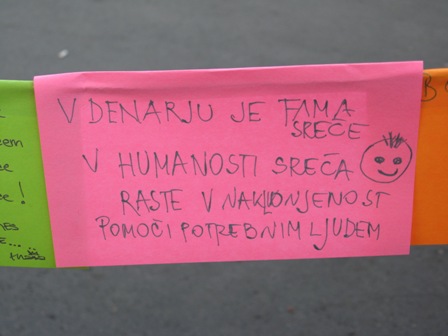 V DENARJU JE FAMA
SREČE
V HUMANOSTI SREČA
RASTE V NAKLONJENOST
POMOČI POTREBNIM LJUDEM